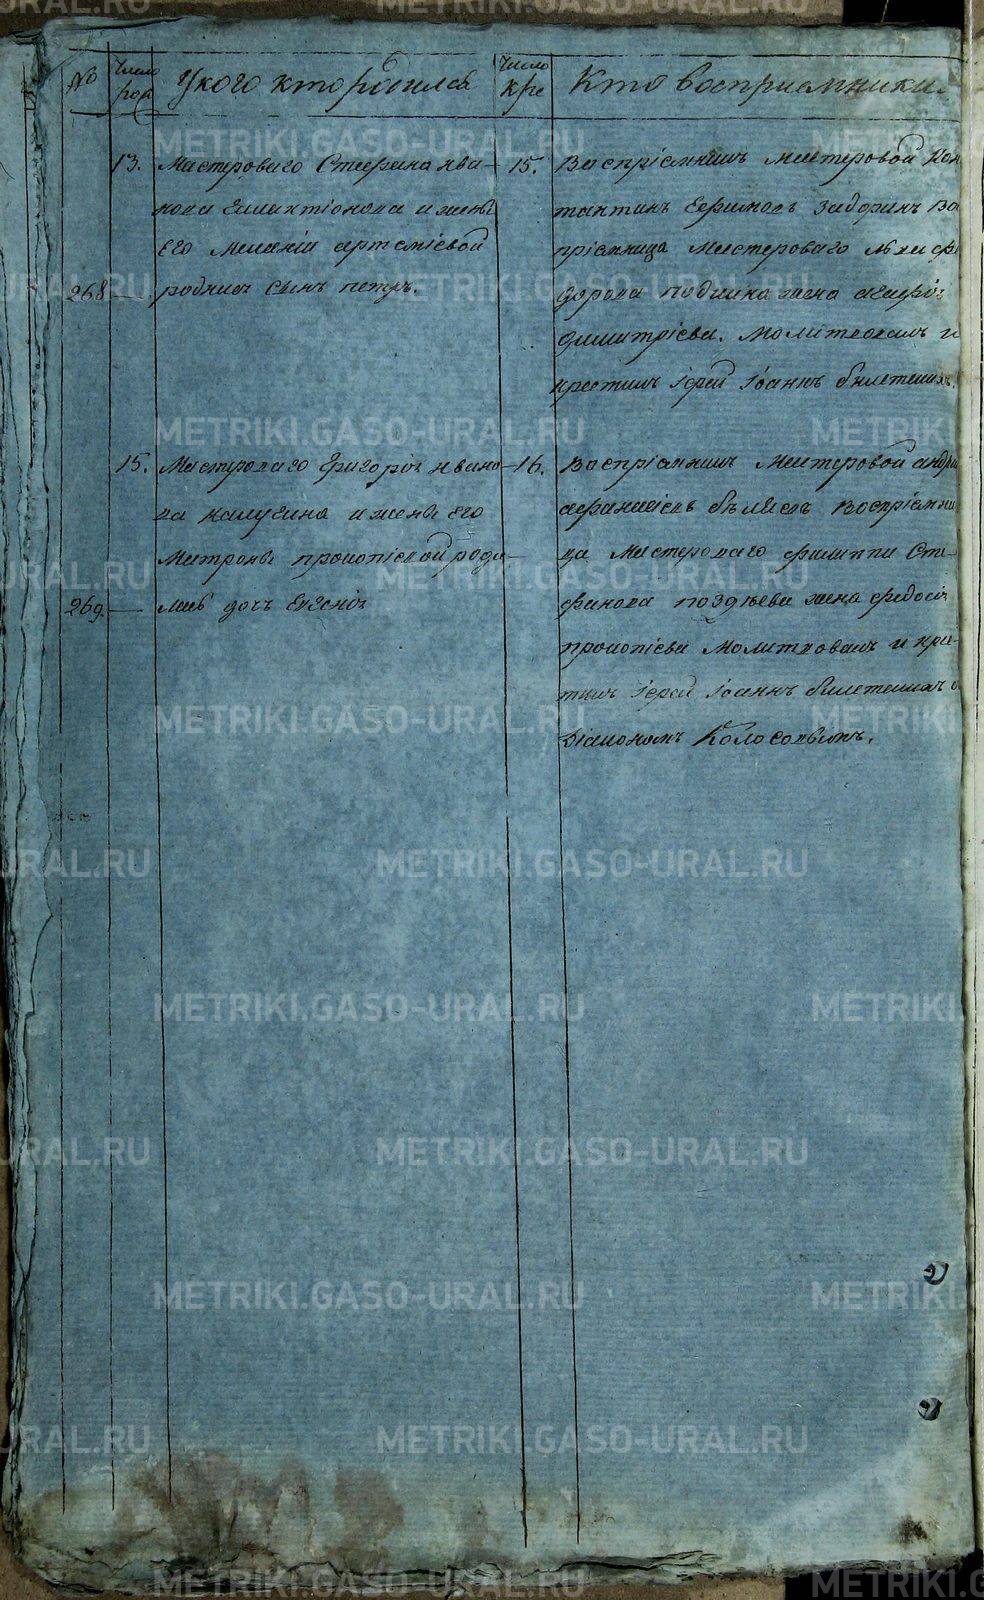 №
Число род
У кого кто родился
Число кре
Кто восприемники.
13.
Мастероваго Стефана Ива-
нова Галактионова и жены
его Меланіи Артеміевой
268 — родился сынъ Петръ.
15.
Воспріемникъ Мастеровой Кон
тантинъ Ефимовъ Задоринъ Во
пріемница Мастероваго
дорова жена
Димитріева. Молитвовалъ и
крестилъ Іерей Іоаннъ
15.
Мастероваго Григорія Ивано-
ва Калугина и жены его
Матроны Прокопіевой роди-
269. — лась дочь Евгенія
16.
Воспріемникъ Мастеровой Андре
Афанасіевъ Бѣляевъ Воспріемни
ца Мастероваго Филиппа Сте-
фанова Поздѣева жена Федосія
Прокопіева Молитвовалъ и кре-
тилъ Іерей Іоаннъ
Діакономъ Колосовымъ.
METRIKI.GASO-URAL.RU